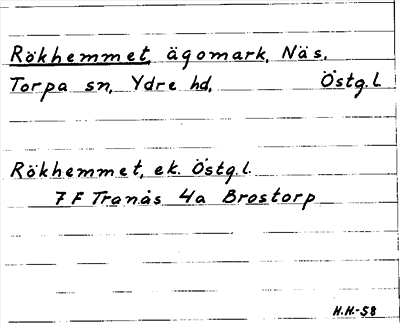 Rökhemmet, ägomark, Näs,
Torpa sn, Ydre hd, Östg.l
Rökhemmet, ek. Östg.l.
7 F Tranås 4a Brostorp
H.H-58